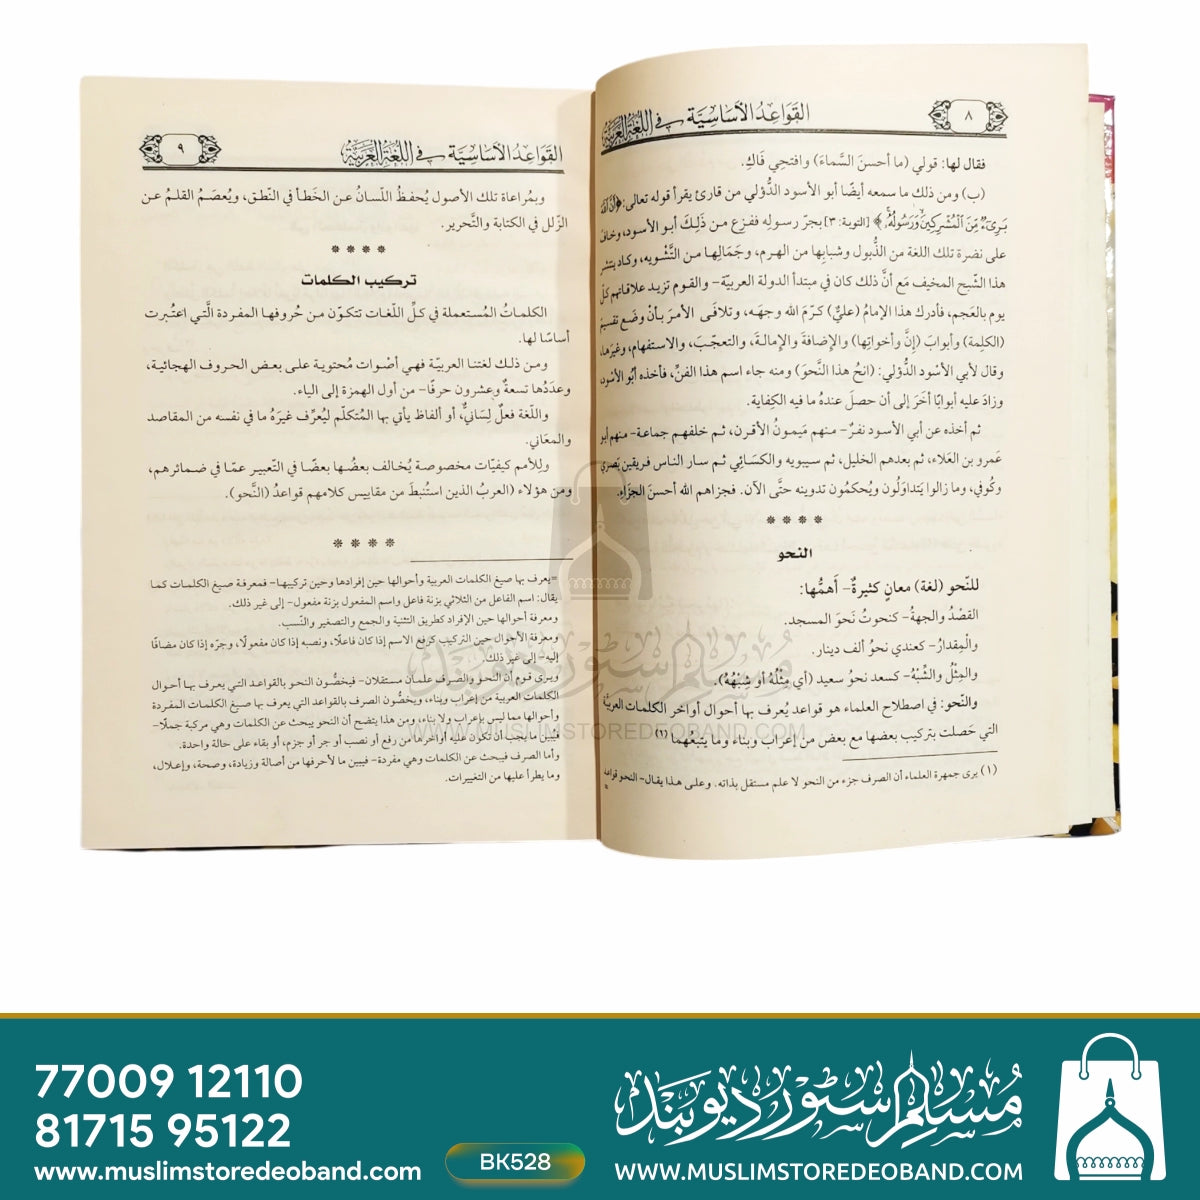 القَوَاعِدُ الأسَاسِيَّة في اللغَةِ العَرَبيَّة
٨
فقال لها: قولي (ما أحسنَ السَّماءَ) وافتحِي فَاكِ.
(ب) ومن ذلك ما سمعه أيضًا أبو الأسود الدُّؤلي من قارئ يقرأ قوله تعالى: ﴿أَنَّ اللَّهَ
بَرِيءٌ مِّنَ الْمُشْرِكِينَ وَرَسُولُهُ﴾ [التوبة: ٣] بجرّ رسوله ففزع من ذَلِكَ أبو الأسود، وخاف
على نضرة تلك اللغة من الذُّبول وشبابِها من الهرم، وجَمَالِها من التَّشْويه، وكاد ينتشر
هذا الشَّبح المخيف مَع أنَّ ذلك كان في مبتدأ الدولة العربيّة- والقوم تزيد علاقاتهم كلّ
يوم بالعَجم، فأدرك هذا الإمامُ (عليٌّ) كرّمَ الله وجهَه، وتلافَى الأمرَ بأنْ وضَع تقسيمَ
(الكلِمة) وأبوابَ (إنَّ وأخواتِها) والإضافَة والإمالَة، والتعجّبَ، والاستفهام، وغيرَها،
وقال لأبي الأسْود الدُّؤلي: (انحُ هذا النَّحوَ) ومنه جاء اسم هذا الفنّ، فأخذه أبُو الأسْود،
وزادَ عليه أبوابًا أخَرَ إلى أن حصلَ عندهُ ما فيه الكِفاية.
ثم أخذه عن أبي الأسود نفرٌ- منهم مَيمونُ الأقرن، ثم خلفهم جماعة- منهم أبو
عَمرو بن العَلاء، ثم بعدهم الخليل، ثم سيبويه والكسَائي، ثم سار الناس فريقين بَصرَي
وكُوفي، وما زالوا يَتداوَلُون ويُحكمُون تدوينه حتَّى الآن. فجزاهم الله أحسنَ الجزَاءِ.
****
النحو
للنّحو (لغة) معانٍ كثيرةٌ- أهَمُّها:
القصْدُ والجِهةُ- كنحوتُ نَحوَ المسجد.
والمِقدارُ- كعندي نحوُ ألف دينار.
والمِثْلُ والشِّبْهُ- كسعد نحوُ سعيد (أي مِثْلُهُ أو شِبْهُهُ).
والنّحو: في اصطلاح العلماء هو قواعد يُعرف بها أحوال أواخر الكلمات العربيَّة
التي حَصلت بتركيب بعضها مع بعض من إعْراب وبناء وما يتبعُهما (١)
(١) يرى جمهرة العلماء أن الصرف جزء من النحو لا علم مستقل بذاته. وعلى هذا يقال- النحو قواعد
=
القَوَاعِدُ الأسَاسِيَّة في اللغَةِ العَرَبيَّة
٩
وبمُراعاة تلك الأصول يُحفظُ اللّسانُ عن الخَطأ في النّطق، ويُعصَمُ القلمُ عن
الزّلل في الكتابة والتَّحرير.
****
تركيب الكلمات
الكلماتُ المُستعملة في كلِّ اللّغات تتكوّن من حُروفها المفردة الَّتي اعتُبرت
أساسًا لها.
ومن ذلك لغتنا العربيّة فهي أصْوات مُحتوية على بعض الحروف الهجائية،
وعدَدُها تسعةٌ وعشرون حرفًا- من أول الهمزة إلى الياء.
واللّغة فعلٌ لِسَانيٌّ، أو ألفاظ يأتي بها المُتكلّم ليُعرِّف غيرَهُ ما في نفسه من المقاصد
والمعَاني.
ولِلأمم كيفيّات مخصوصة يُخالف بعضُها بعضًا في التّعبير عمّا في ضمائرهم،
ومن هؤلاء (العربُ الذين استُنبطَ من مقاييس كلامهم قواعدُ (النَّحو).
****
=يعرف بها صيغ الكلمات العربية وأحوالها حين إفرادها وحين تركيبها- فمعرفة صيغ الكلمات كما
يقال: اسم الفاعل من الثلاثي بزنة فاعل واسم المفعول بزنة مفعول- إلى غير ذلك.
ومعرفة أحوالها حين الإفراد كطريق التثنية والجمع والتصغير والنّسب.
ومعرفة الأحوال حين التركيب كرفع الاسم إذا كان فاعلًا، ونصبه إذا كان مفعولًا، وجرّه إذا كان مضافًا
إليه- إلى غير ذلك.
ويرى قوم أن النحو والصرف علمان مستقلان- فيخصُّون النحو بالقواعد التي يعرف بها أحوال
الكلمات العربية من إعراب وبناء، ويخصُّون الصرف بالقواعد التي يعرف بها صيغ الكلمات المفردة
وأحوالها مما ليس بإعراب ولا بناء، ومن هذا يتضح أن النحو يبحث عن الكلمات وهي مركبة جملًا-
فيبين ما يجب أن تكون عليه أواخرها من رفع أو نصب أو جر أو جزم، أو بقاء على حالة واحدة.
وأما الصرف فيبحث عن الكلمات وهي مفردة- فيبين ما لأحرفها من أصالة وزيادة، وصحة، وإعلال،
وما يطرأ عليها من التغييرات.
مسلم سٹور دیوبند
WWW.MUSLIMSTOREDEOBAND.COM
77009 12110
81715 95122
www.muslimstoredeoband.com
BK528
مسلم سٹور دیوبند
WWW.MUSLIMSTOREDEOBAND.COM